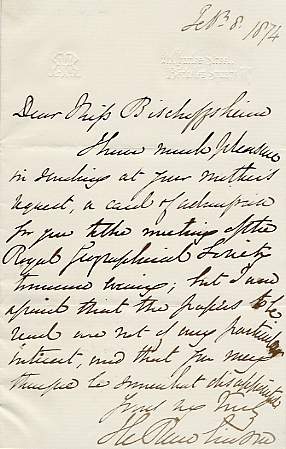 Feb 8. 1874
Dear Miss Bischoffsheim
I have much pleasure
in sending at your mother's
request, a card of admission
for you to the meeting of the
Royal Geographical Society
tomorrow evening; but I am
afraid that the papers to be
read are not of any particular
interest, and that you may
therefore be somewhat disappointed
Yours very truly
H C Rawlinson